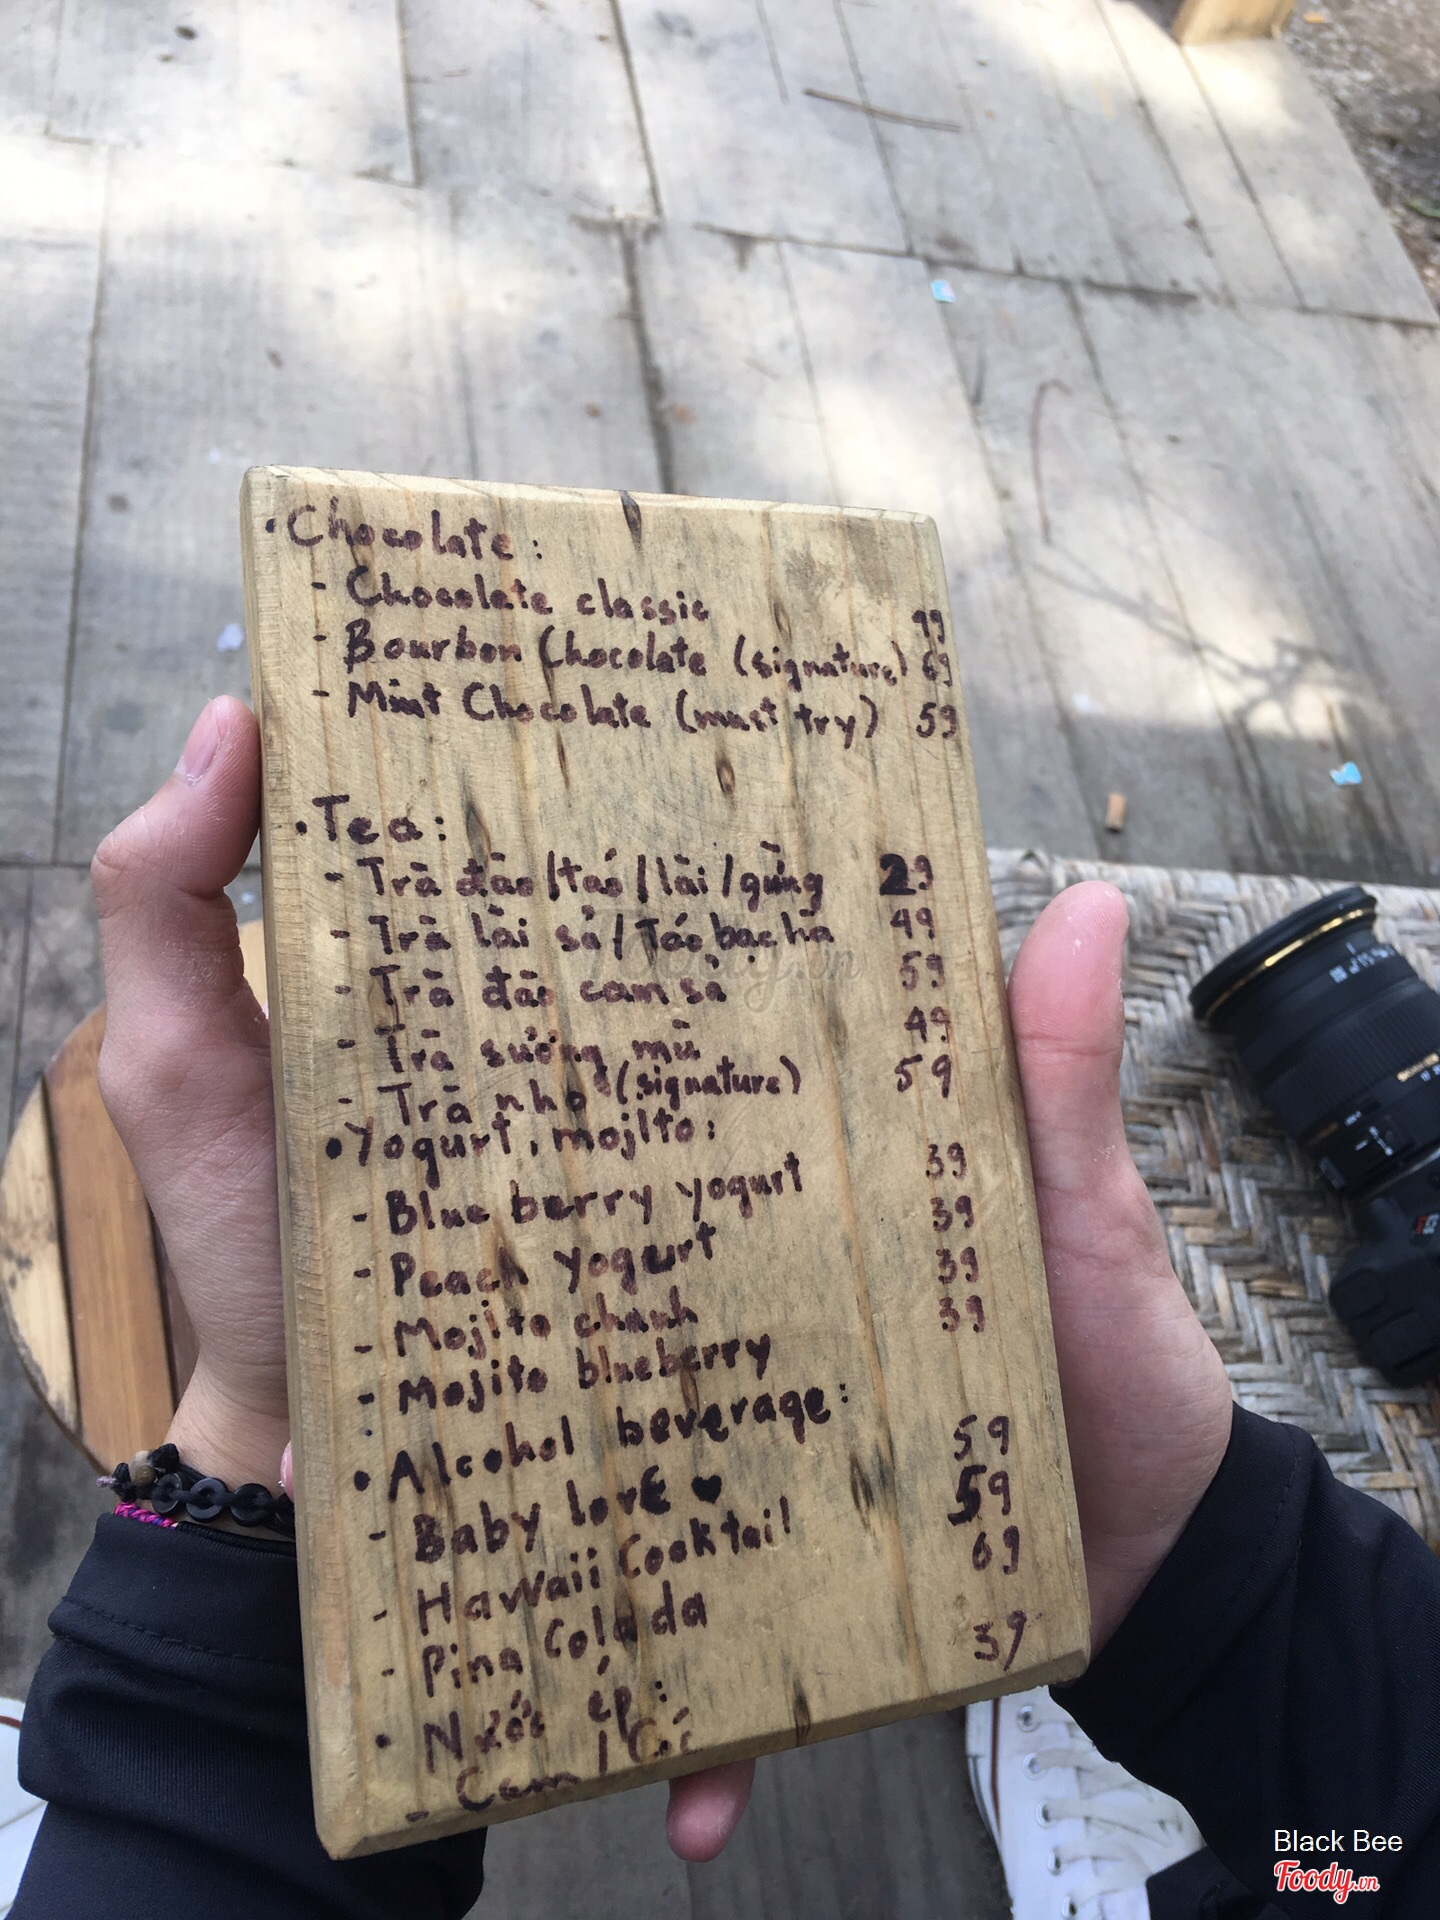 • Chocolate:
- Chocolate classic 49
- Bourbon Chocolate (signature) 69
- Mint Chocolate (must try) 59
• Tea:
- Trà đào/táo/lài/gừng 29
- Trà lài sả/Táo bạc hà 49
- Trà đào cam sả 59
- Trà sương mù 49
- Trà nho (signature) 59
• Yogurt, mojito:
- Blue berry yogurt 39
- Peach yogurt 39
- Mojito chanh 39
- Mojito blueberry 39
• Alcohol beverage:
- Baby lovE ♥ 59
- Hawaii Cooktail 59
- Pina Colada 69
• Nước ép:
- Cam / Cóc 39
Foody.vn
Black Bee
Foody.vn